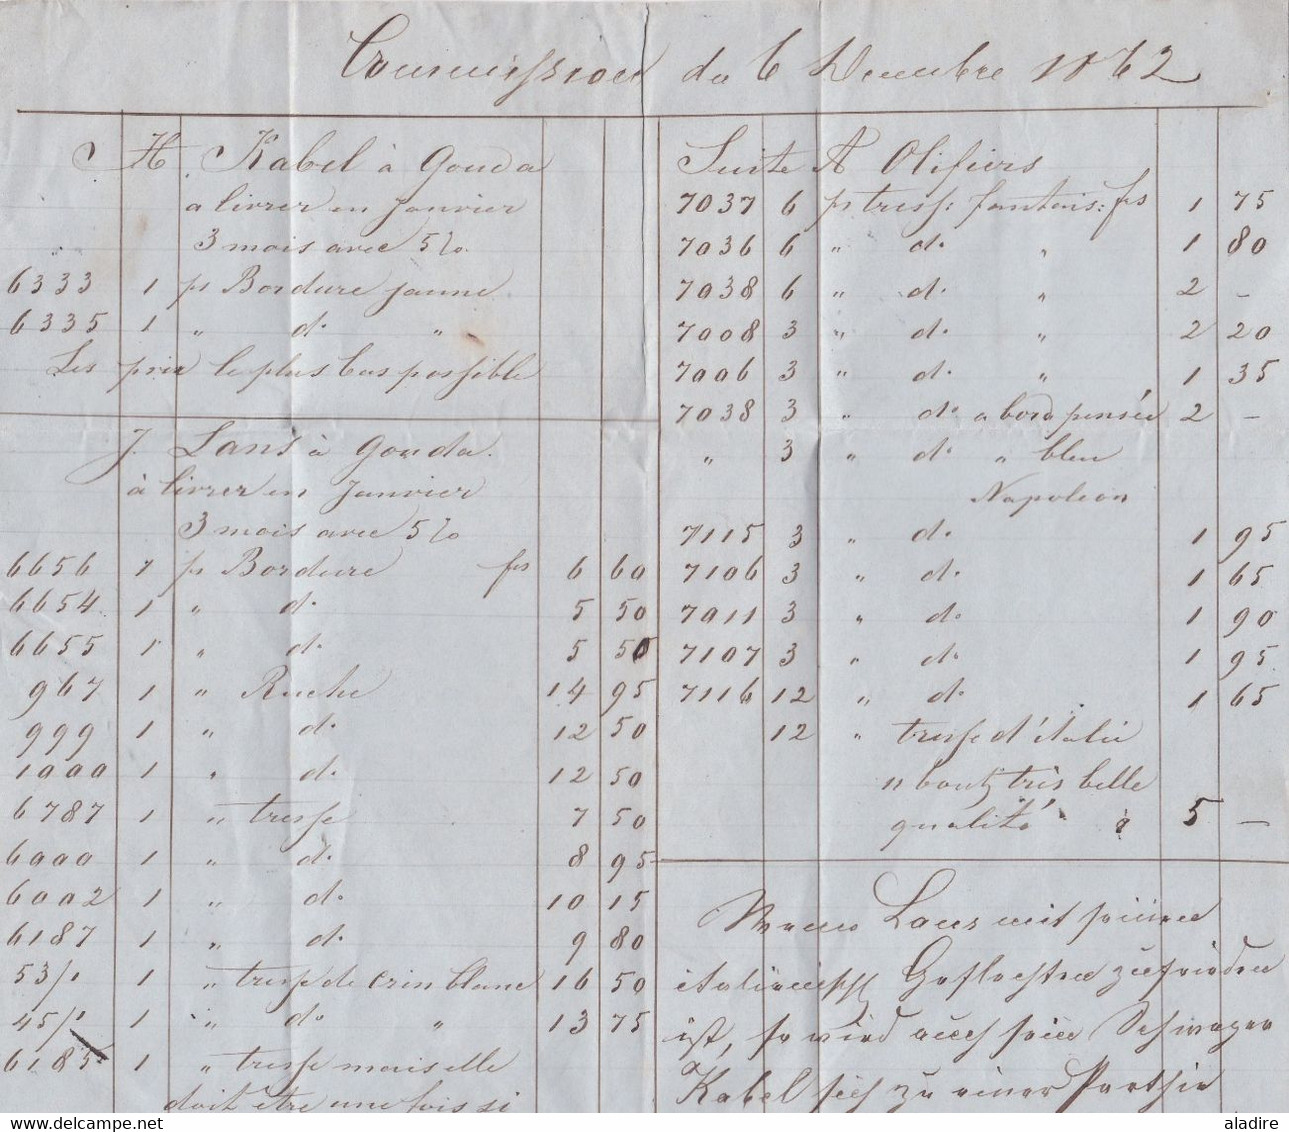 Commission du 6 Decembre 1862
H. Kabel à Gouda
a livrer en Janvier
3 mois avec 5 %
6333 1 ps Bordure jaune
6335 1 " do "
Les prix le plus bas possible
J. Lans à Gouda.
à livrer en Janvier
3 mois avec 5 %
6656 1 ps Bordure frs 6 60
6654 1 " do 5 50
6655 1 " do 5 50
967 1 " Ruche 14 95
999 1 " do 12 50
1000 1 " do 12 50
6787 1 " tresse 7 50
6000 1 " do 8 95
6002 1 " do 10 15
6187 1 " do 9 80
53/1 1 " tresse de crin blanc 16 50
45/1 1 " do " 13 75
6185 1 " tresse mais elle
doit etre une fois si
Suite A Olifiers
7037 6 ps tress: fantais: frs 1 75
7036 6 " do " 1 80
7038 6 " do " 2 –
7008 3 " do " 2 20
7006 3 " do " 1 35
7038 3 " do a bord pensée 2 –
" 3 " do " bleu
Napoleon
7115 3 " do 1 95
7106 3 " do 1 65
7011 3 " do 1 90
7107 3 " do 1 95
7116 12 " do 1 65
12 " tresse d'italie
n bouts très belle
qualité à 5 –
Wenn Lans mit seinen
italienisch Geflochten zufrieden
ist, so wird auch sein Schwager
Kabel sich zu einer Parthie
© aladire - delcampe.net